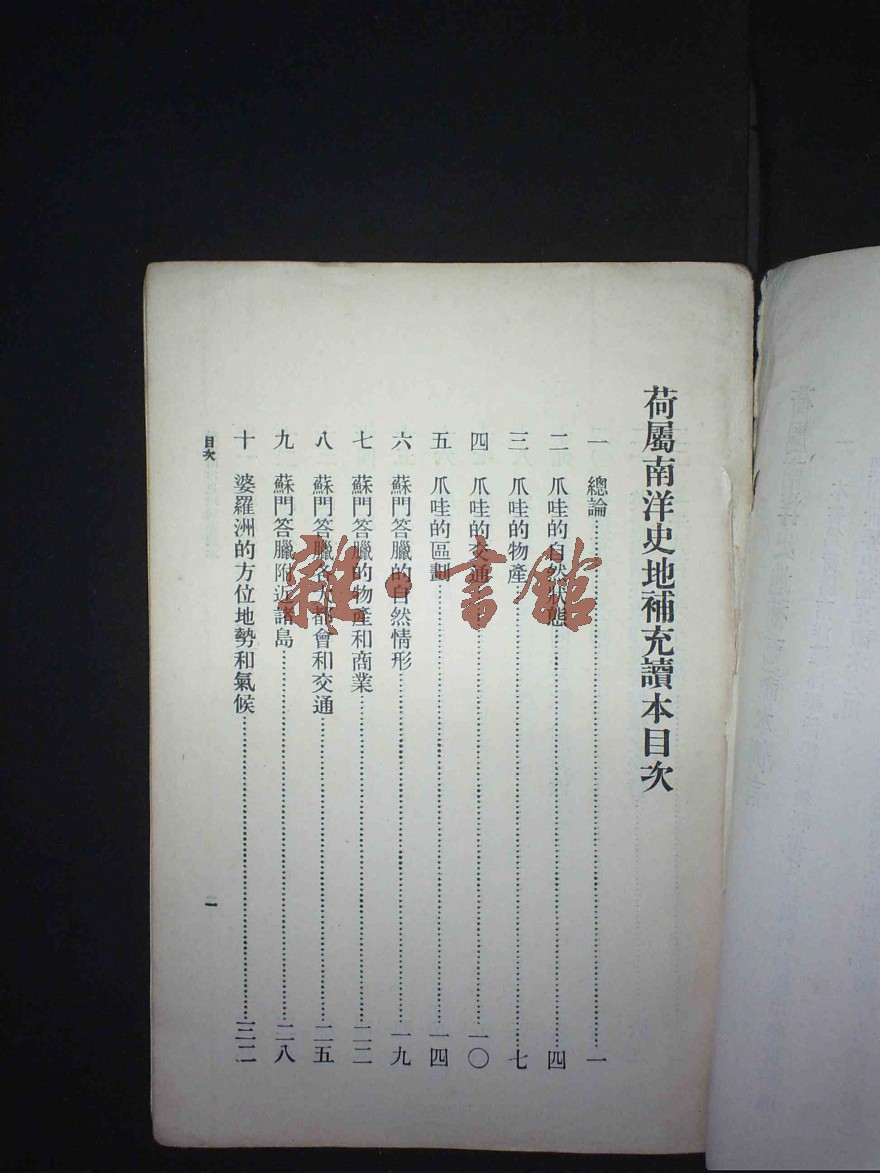 荷屬南洋史地補充讀本目次
一 總論……一
二 爪哇的自然狀態……四
三 爪哇的物產……七
四 爪哇的交通……一〇
五 爪哇的區劃……一四
六 蘇門答臘的自然情形……一九
七 蘇門答臘的物產和商業……二二
八 蘇門答臘各大都會和交通……二五
九 蘇門答臘附近諸島……二八
十 婆羅洲的方位地勢和氣候……三二
目次
一
雜·書館